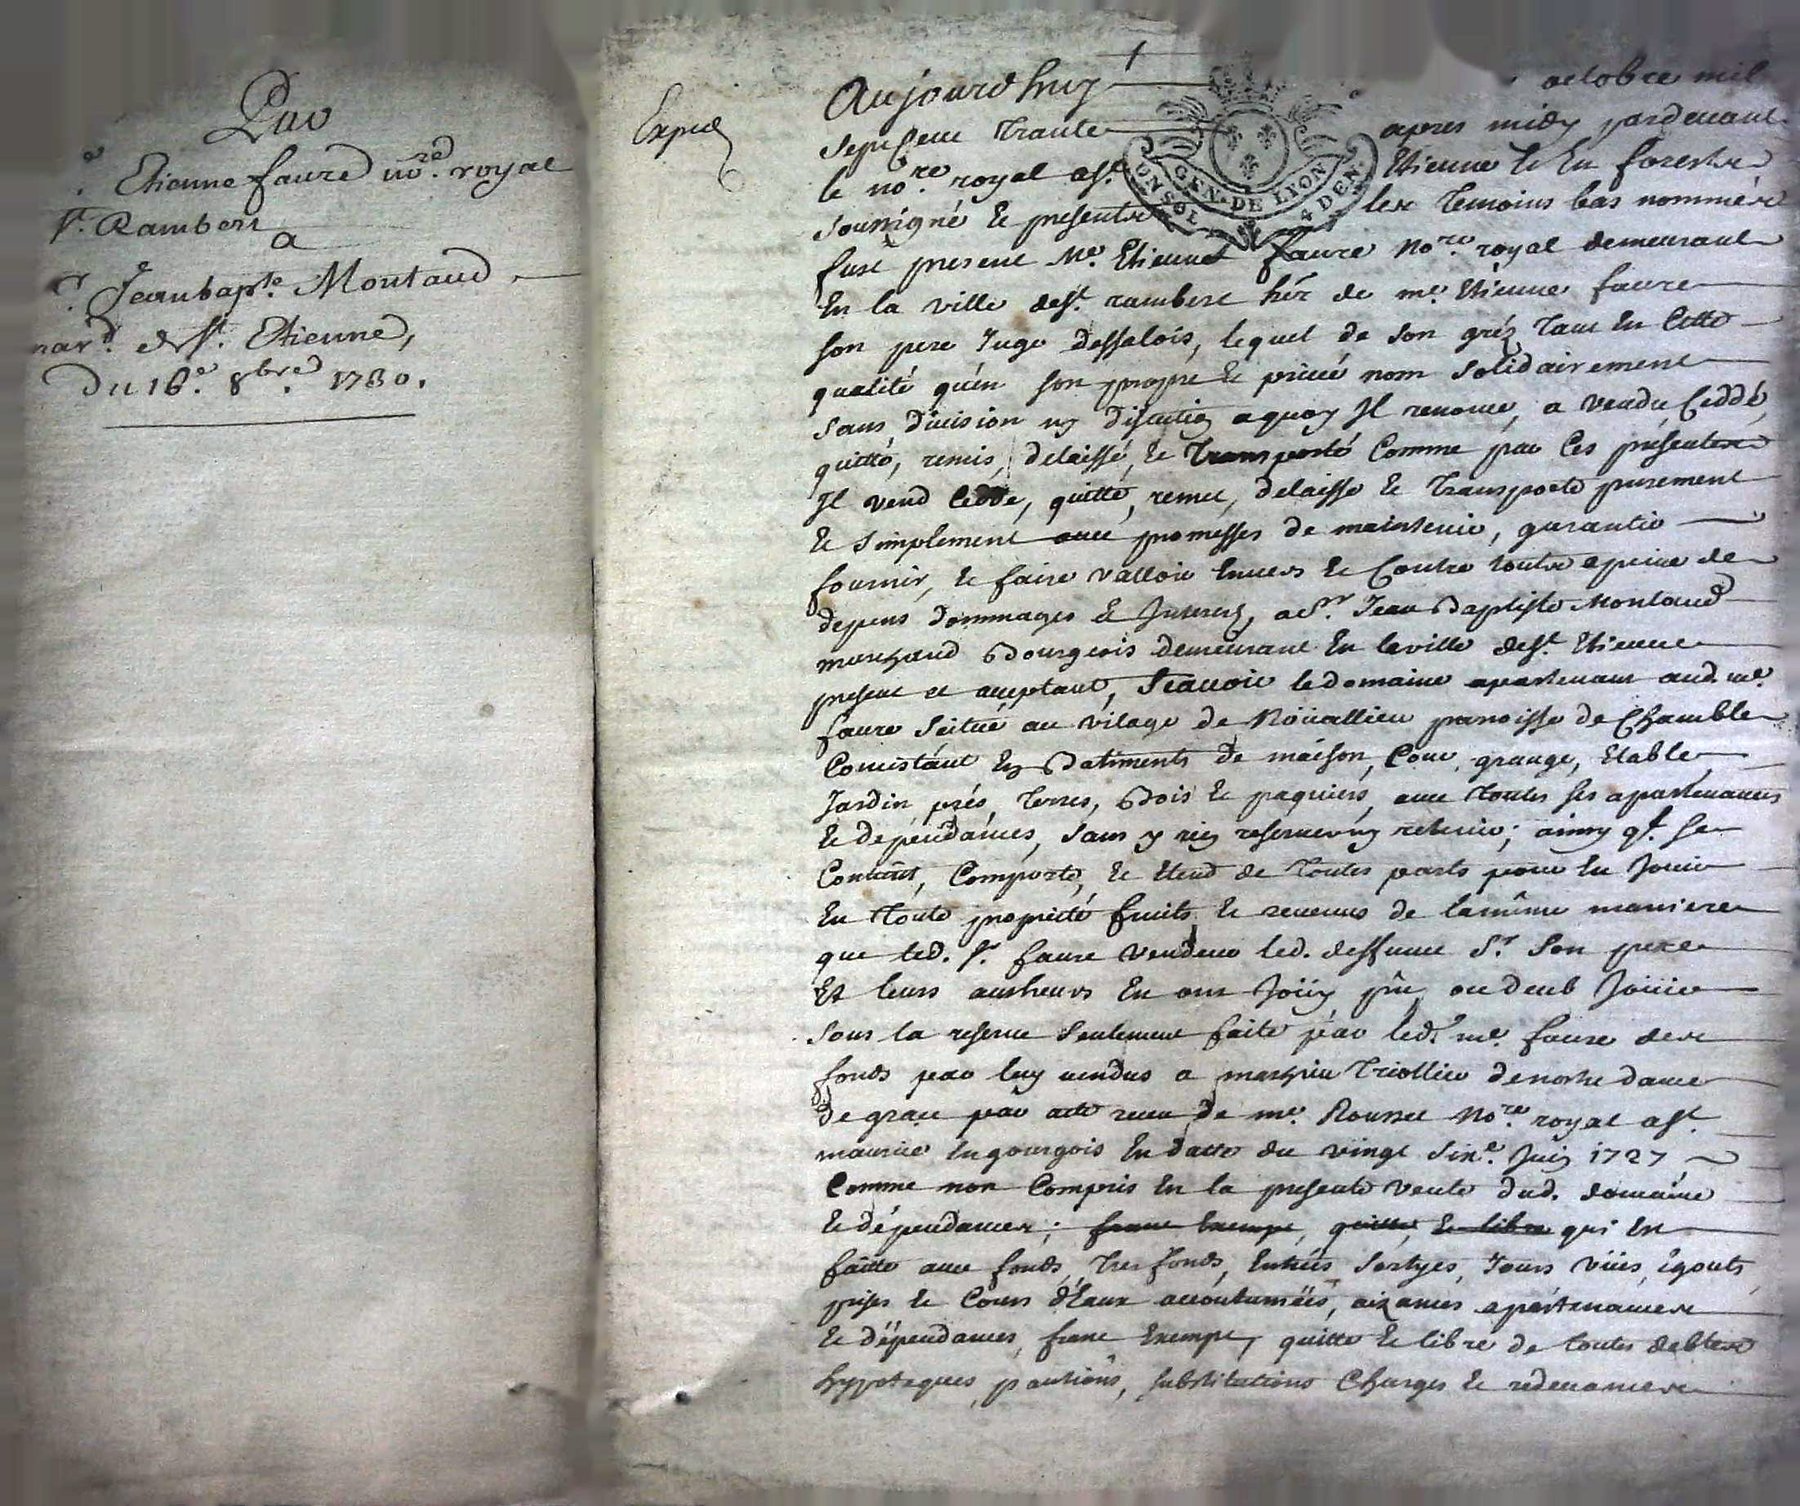 Par
Etienne faure no.re royal
St. Rambert
a
Sr. Jean bapt.e Montaud
mar.d de St. Etienne,
Du 16.e 8bre. 1730.
Exped
Aujourdhuy octobre mil
Sept Cent Trante apres midy pardevant
le no.re royal a St. Etienne le En forest
soussigné le presents les Temoins bas nommés
fust present Me. Etienne faure No.re royal demeurant
En la ville de St. rambert hér de me. Etienne faure
son pere Juge Dessalois, lequel de son gréz Tant En Cette
qualité qu'en son propre & privé nom Solidairement
sans division ny discution aquoy Il renonce, a vendu Ceddé,
quitté, remis, delaissé, & Transporté Comme par Ces presentes
Il vend Cedde, quitte, remet, delaisse & Transporte purement
& Simplement avec promesses de maintenir, garantir
fournir, & faire valloir Envers & Contre toutes apeine de
depens dommages & Interest, a Sr. Jean Baptiste Montaud
marchand Bourgeois demeurant En la ville de St. Etienne
present et aceptant, Scavoir le domaine apartenant aud. me.
faure Scitué au vilage de Noüallieu parroisse de Chamble
Concistant En Batiments de maison, Cour, grange, Etable
Jardin, prés, Terres, Bois & paquiers, avec toutes ses apartenances
& dependances, Sans y rien reserver ny retenir; ainsy q.l se
Contient, Comporte, & Etend de Toutes parts pour En Jouir
En Toute proprieté fruits & revenus de la même maniere
que led. Sr. faure vendeur led. deffunt Sr. Son pere
Et leurs autheurs En ont Joüy pû, ou deub Joüir
Sous la reserve Seulement faite par led. me. faure des
fonds par luy vendus a mathieu Triollier de nostre dame
de grace par acte receu de me. Rousset No.re royal a St.
maurice En gourgois En datte du vingt Sixe. Juin 1727
Comme non Compris En la presente vente dud. domaine
& dépendances; franc Exempt, quitte, & libre qui En
faitte avec fonds, Tres fonds, Entrées Sortyes, Jours vües, égouts
prises & Cours d'Eaux accoutumées, aizances apartenances
& dépendances, franc Exempt, quitte & libre de toutes debtes
hypoteques, pantions, substitutions Charges & redevances
CON SOL 4 DEN.
GEN. DE LYON